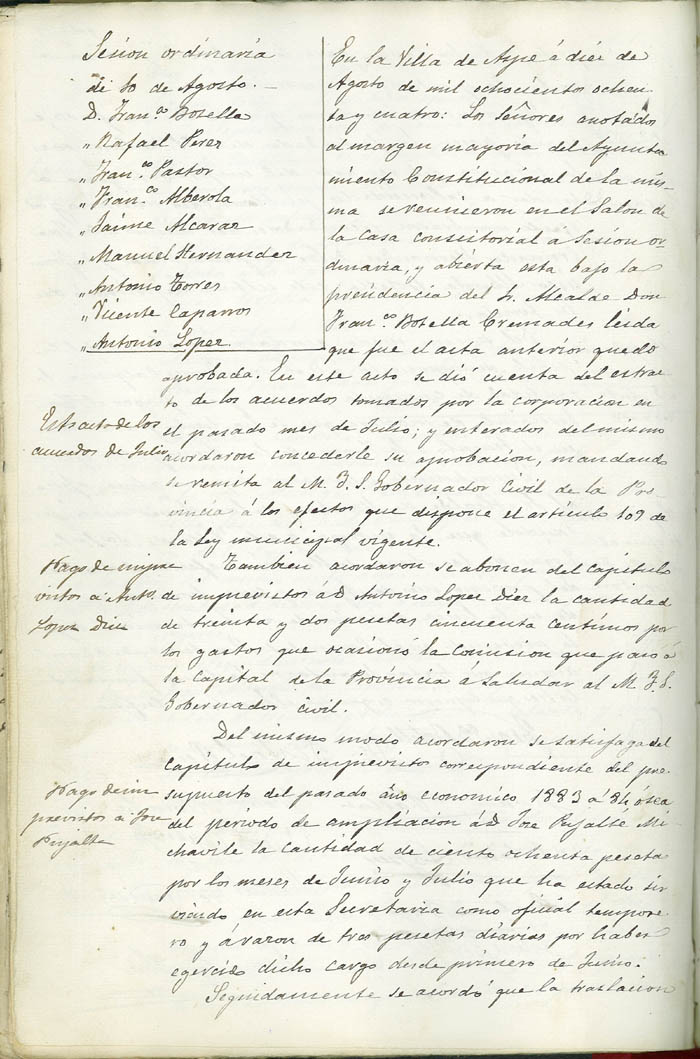 Sesion ordinaria
de 10 de Agosto.
D. Fran.co Botella
" Rafael Perez
" Fran.co Pastor
" Fran.co Alberola
" Jaime Alcaraz
" Manuel Hernandez
" Antonio Torres
" Vicente Caparros
" Antonio Lopez
En la Villa de Aspe á diez de
Agosto de mil ochocientos ochen
ta y cuatro: Los Señores anotados
al margen mayoria del Ayunta
miento Constitucional de la mis-
ma se reunieron en el Salon de
la Casa consistorial á Sesion or
dinaria, y abierta esta bajo la
presidencia del Sr. Alcalde Don
Fran.co Botella Cremades leida
que fue el acta anterior quedó
aprobada. En este acto se dió cuenta del estrac
to de los acuerdos tomados por la corporacion en
el pasado mes de Julio; y enterados del mismo
acordaron concederle su aprobacion, mandando
se remita al M. Y. S. Gobernador Civil de la Pro-
vincia á los efectos que dispone el artículo 109 de
la Ley municipal vigente.
Estracto de los
acuerdos de Julio
Tambien acordaron se abonen del capitulo
de imprevistos á D Antonio Lopez Diez la cantidad
de treinta y dos pesetas cincuenta centimos por
los gastos que ocasionó la Comision que pasó á
la Capital de la Provincia á Saludar al M. Y. S.
Gobernador Civil.
Pago de impre
vistos a Ant.o
Lopez Diez
Del mismo modo acordaron se satisfaga del
Capitulo de imprevistos correspondiente del pre-
supuesto del pasado año economico 1883 á 84 ó sea
del periodo de ampliacion á D Jose Pujalte Mi-
chavila la cantidad de ciento ochenta pesetas
por los meses de Junio y Julio que ha estado sir
viendo en esta Secretaria como oficial tempore-
ro y á razon de tres pesetas diarias por haber
egercido dicho cargo desde primero de Junio.
Pago de im
previstos a Jose
Pujalte
Seguidamente se acordó que la traslacion